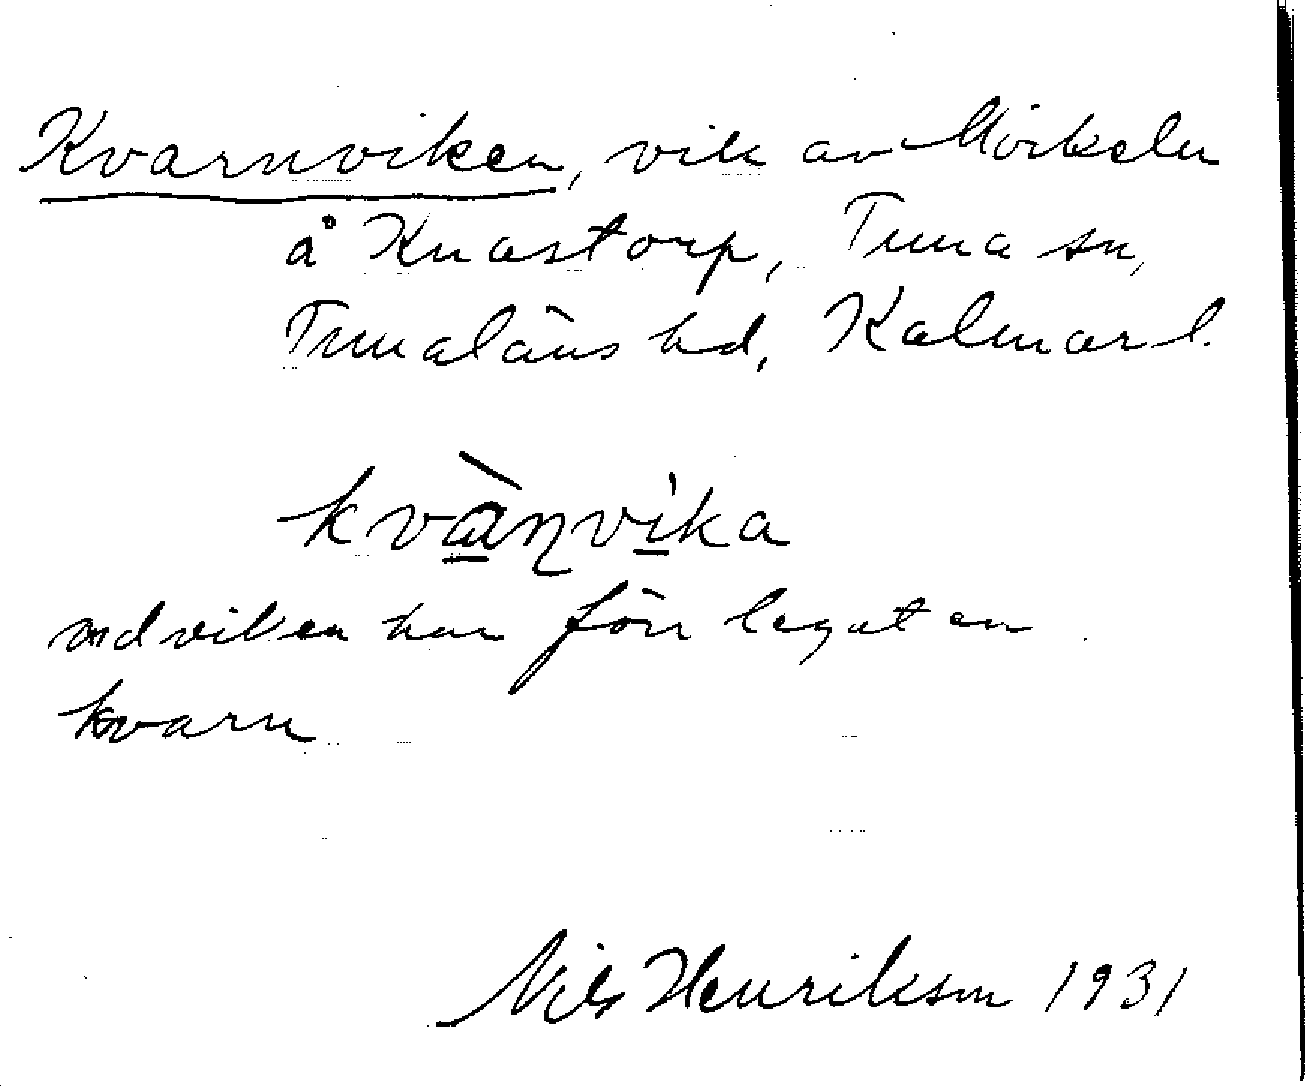 Kvarnviken, vik av Mörkeln
å Knastorp, Tuna sn,
Tunaläns hd, Kalmar l.
kvànvika
vid viken har förr legat en
kvarn
Nils Henrikson 1931